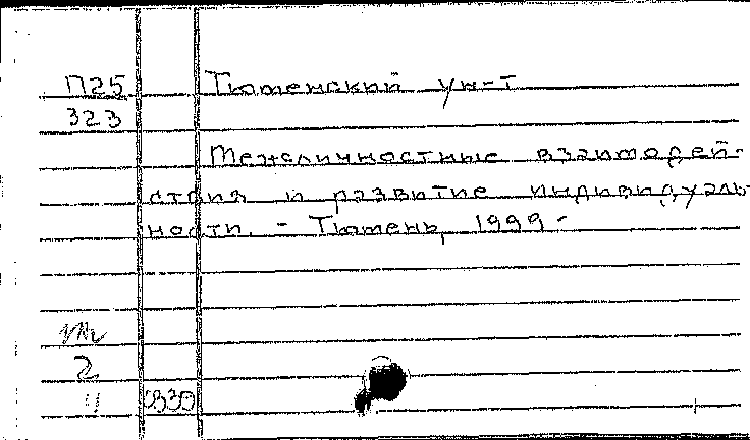 П25 Тюменский ун-т
323
Межличностные взаимодей-
ствия и развитие индивидуаль
ности. - Тюмень, 1999 -
2
4